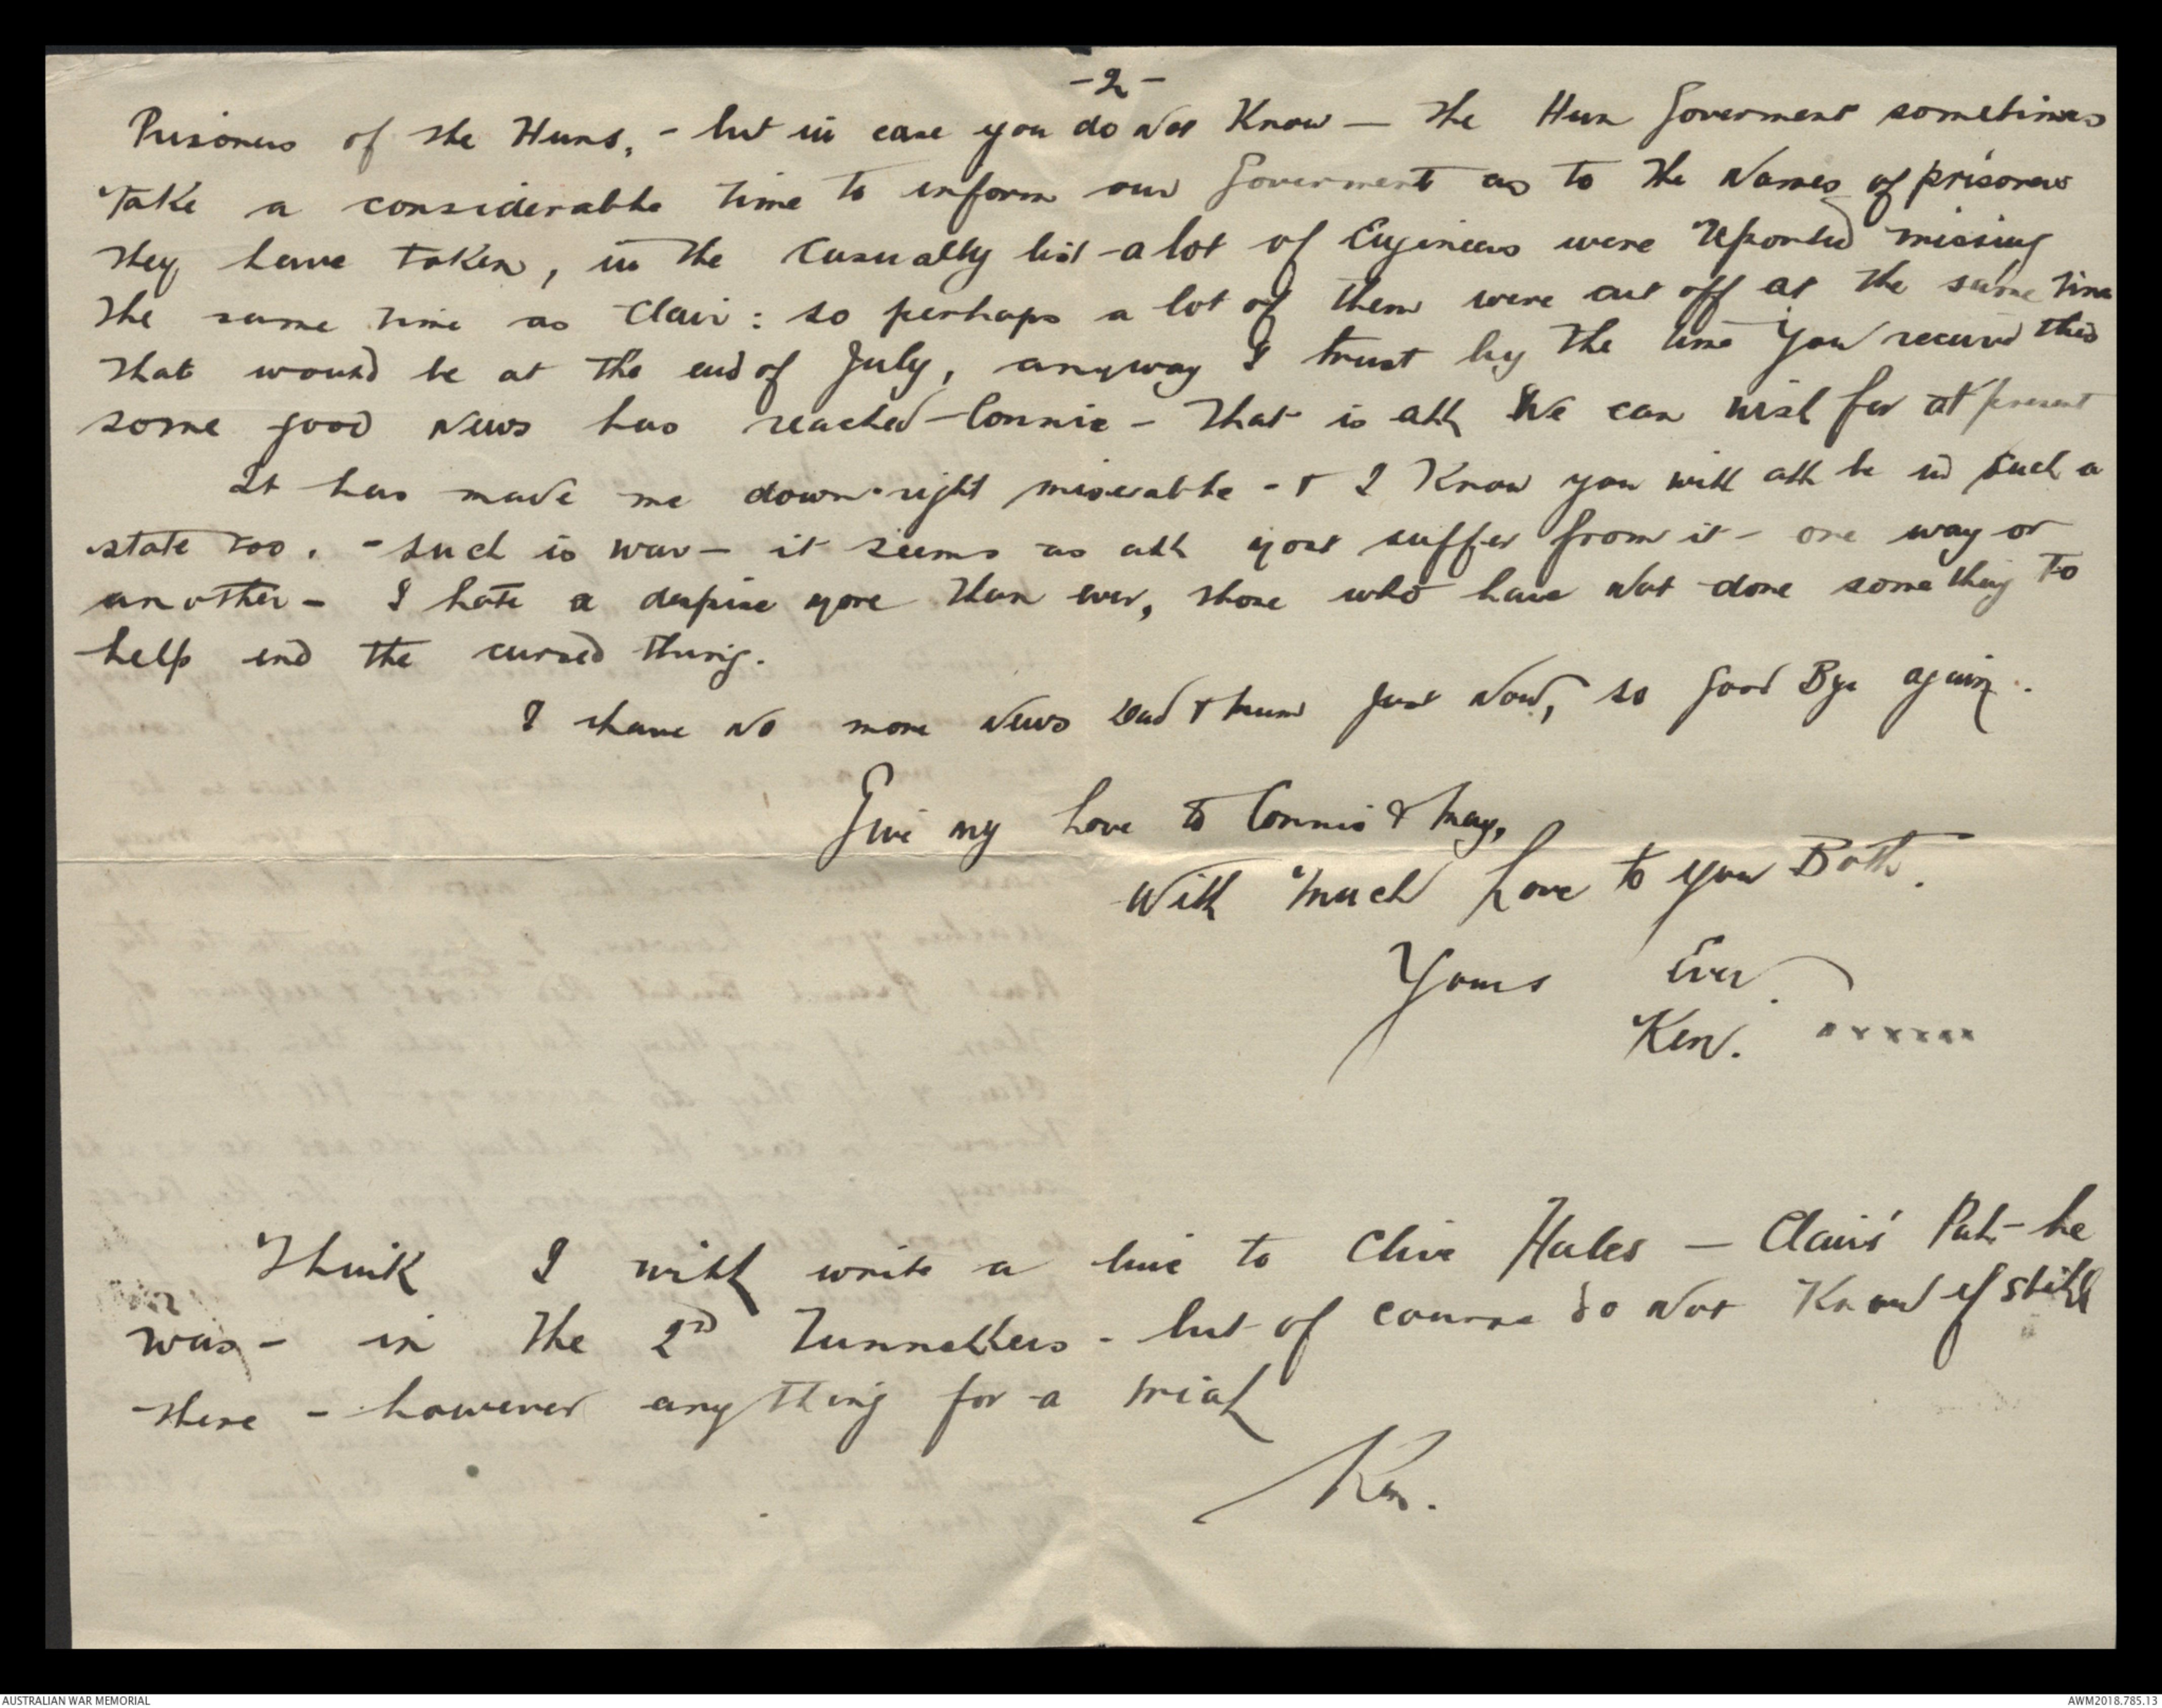 -2-
Prisoners of the Huns, - but in case you do not Know - the Hun Goverment sometimes
Take a considerable time to inform our Goverment as to the Names of prisoners
they have taken, in the Casualty list - a lot of Engineers were reported missing
the same time as Clair: so perhaps a lot of them were cut off at the same time
that would be at the end of July, anyway I trust by the time you receive this
some good news has reached - Connie - that is all we can wish for at present
It has made me down-right miserable - & I Know you will all be in such a
state too. - such is war - it seems as all must suffer from it - one way or
another - I hate & despise more than ever, those who have not done something to
help end the cursed thing.
I have no more news Dad & Mum just now, so Good Bye again.
Give my love to Connie & May,
With much love to you Both.
Yours Ever
Ken. xxxxxx
Think I will write a line to Clive Hales - Clair's Pal - he
was - in the 2nd Tunnellers - but of course do not Know if still
there - however anything for a trial
Ken.
AUSTRALIAN WAR MEMORIAL
AWM2018.785.13